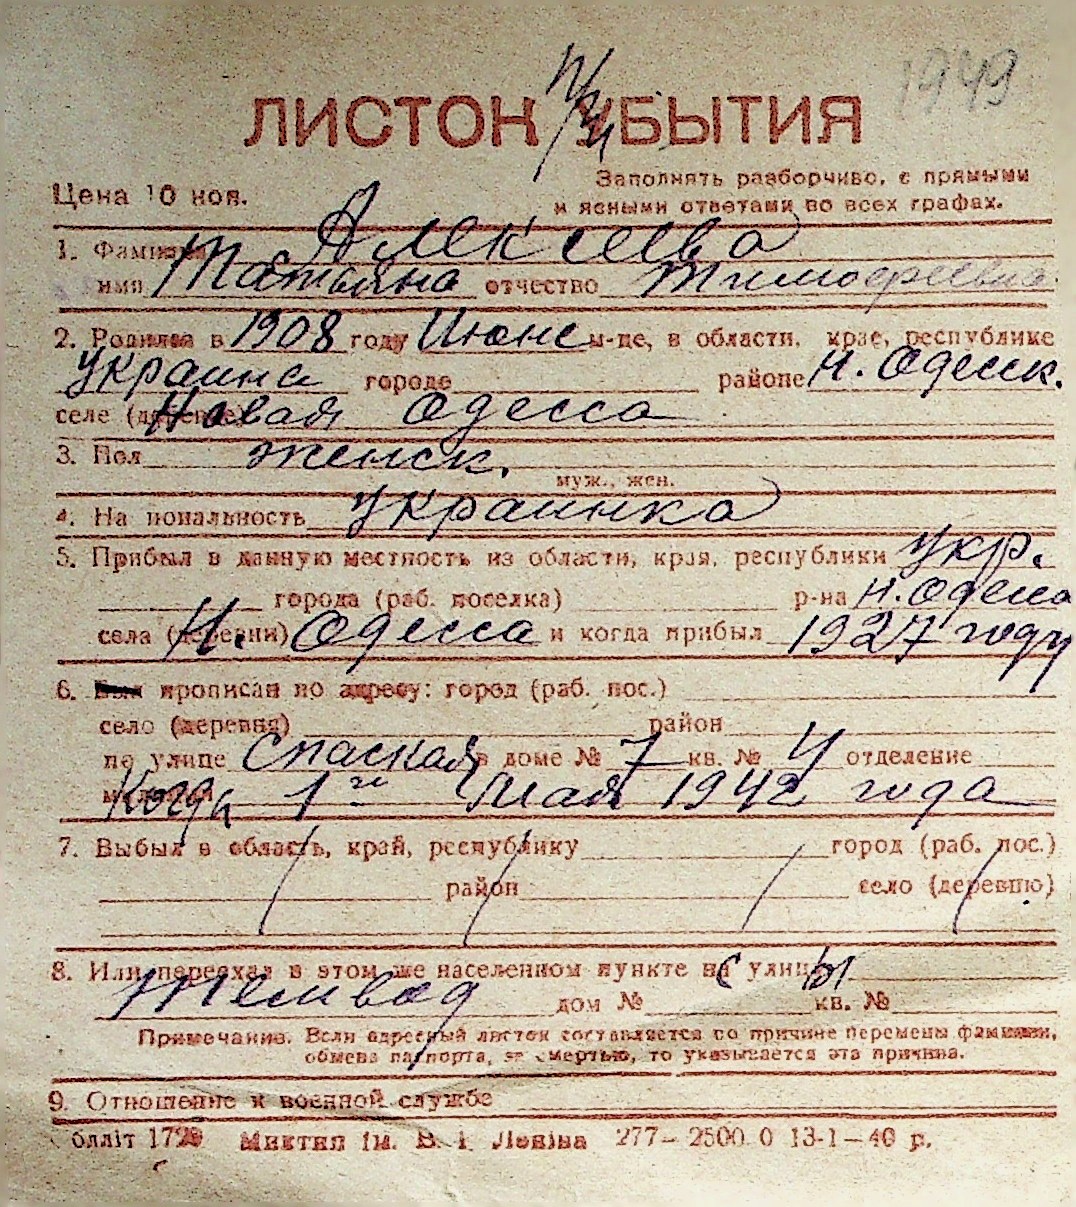 1949
ЛИСТОК УБЫТИЯ
Цена 10 коп.
Заполнять разборчиво, с прямыми
и ясными ответами во всех графах.
1. Фамилия Алексеева
имя Татьяна отчество Тимофеевна
2. Родился в 1908 году Июне м-це, в области, крае, республике
Украина городе районе Н. Одесск.
селе (деревне) Новая Одесса
3. Пол женск.
муж., жен.
4. Национальность Украинка
5. Прибыл в данную местность из области, края, республики Укр.
города (раб. поселка) р-на Н. Одесса
села (деревни) Н. Одесса и когда прибыл 1927 году
6. Был прописан по адресу: город (раб. пос.)
село (деревня) район
по улице Спаская в доме № 7 кв. № 4 отделение
милиции Когда 1го Мая 1942 года
7. Выбыл в область, край, республику город (раб. пос.)
район село (деревню)
8. Или переехал в этом же населенном пункте с улицы
Темвод дом № кв. №
Примечание. Если адресный листок составляется по причине перемены фамилии,
обмена паспорта, за смертью, то указывается эта причина.
9. Отношение к военной службе
Обллiт 1729 Миктип iм. В. I. Ленiна 277—2500.0 13-1—40 р.